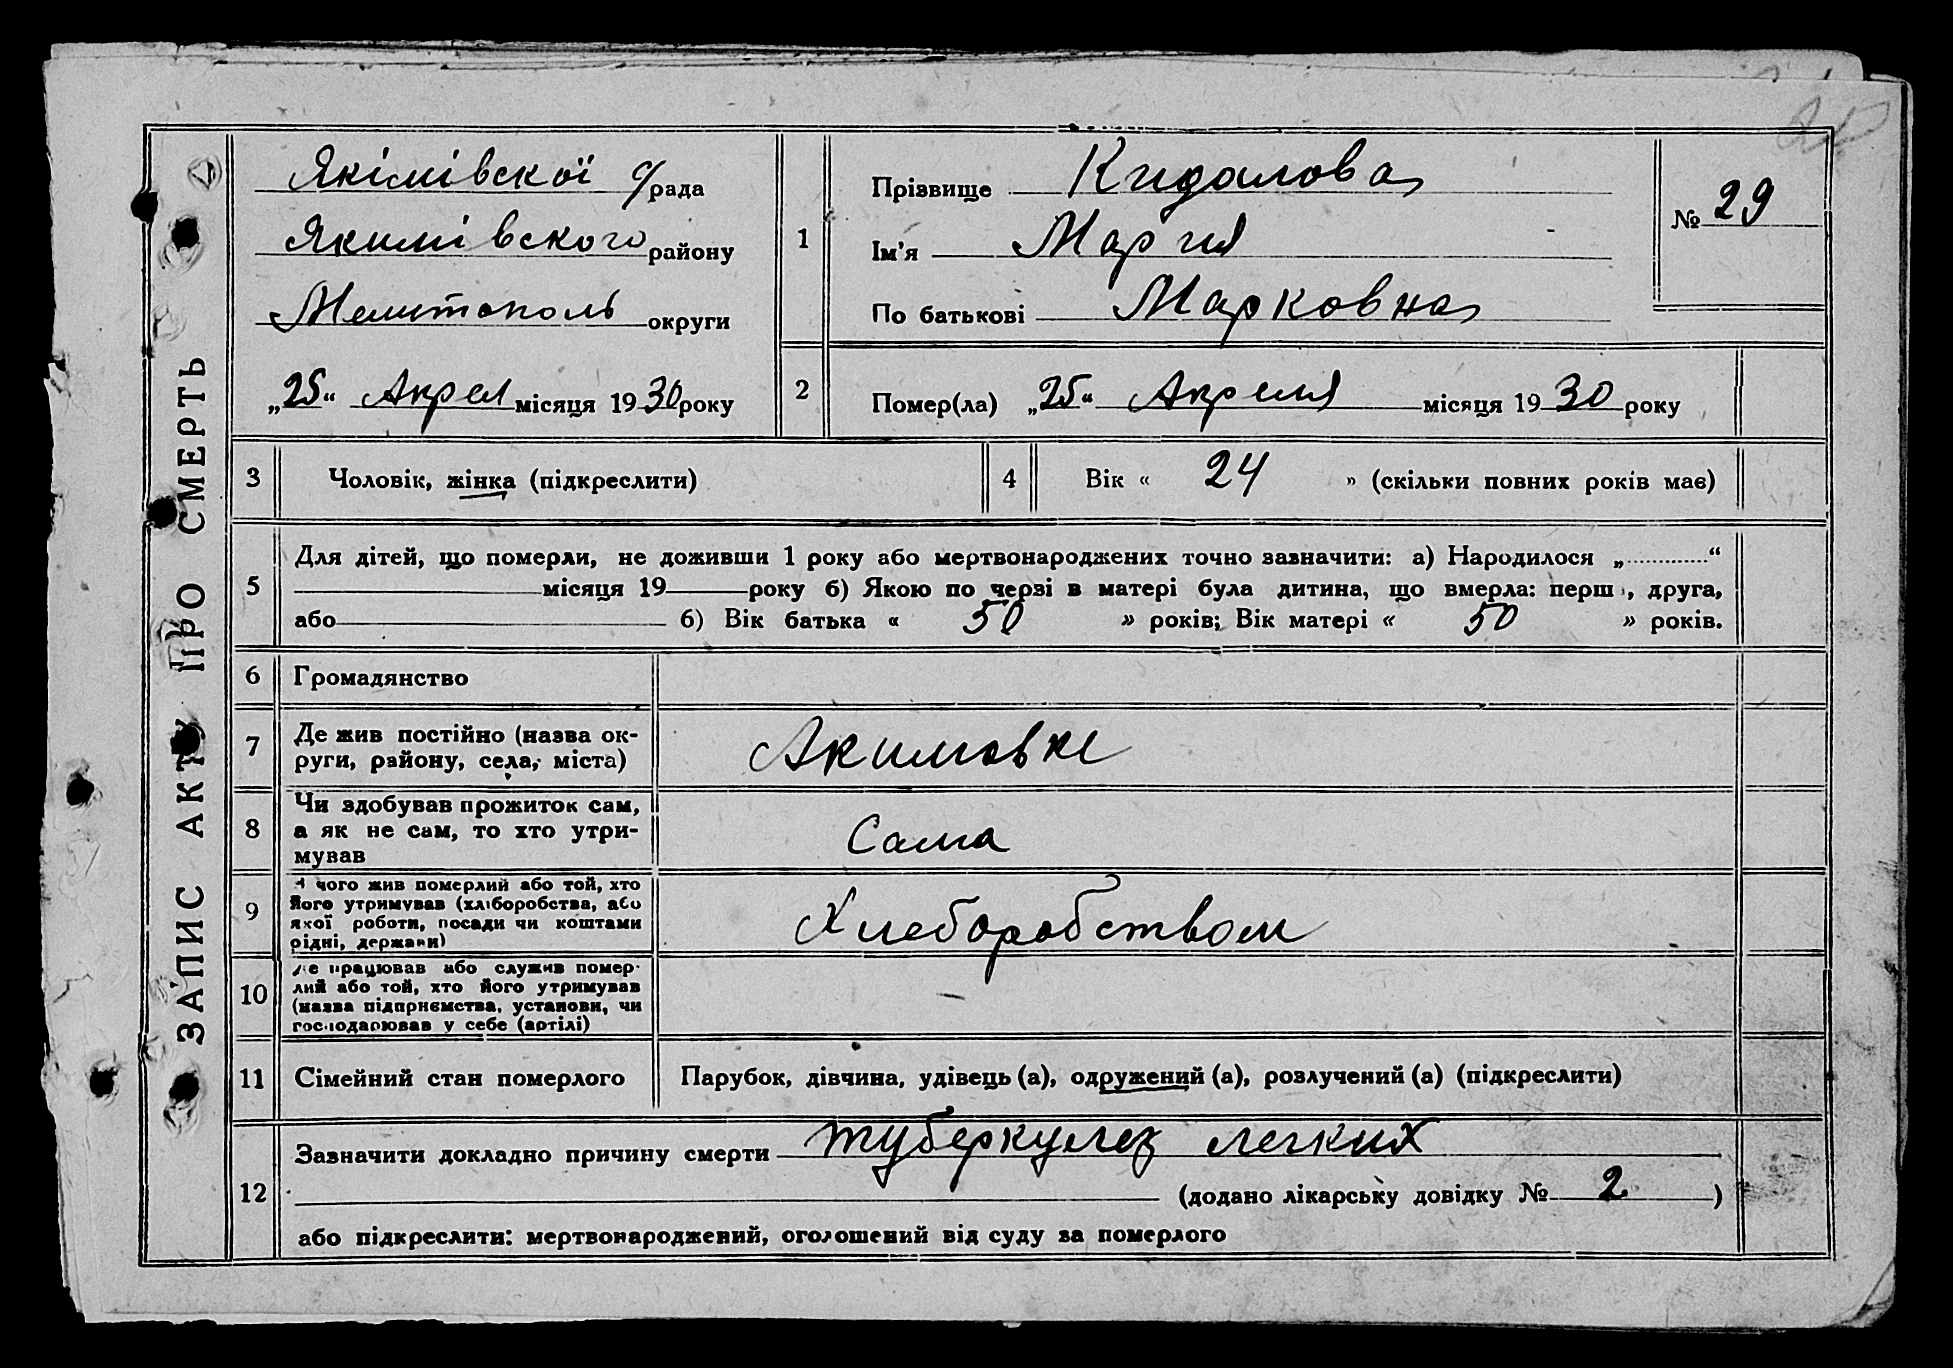 ЗАПИС АКТУ ПРО СМЕРТЬ
Якімівскої с/рада
Якимівского району
Мелитополь округи
„25“ Апрел місяця 1930 року
1
Прізвище Кидалова
Ім'я Мария
По батькові Марковна
№ 29
2
Помер(ла) „25“ Апреля місяця 1930 року
3 Чоловік, жінка (підкреслити)
4 Вік « 24 » (скільки повних років має)
5
Для дітей, що померли, не доживши 1 року або мертвонароджених точно зазначити: а) Народилося „............“
місяця 19 року б) Якою по черзі в матері була дитина, що вмерла: перш , друга,
або б) Вік батька « 50 » років; Вік матері « 50 » років.
6 Громадянство
7
Де жив постійно (назва ок-
руги, району, села, міста)
Акимовке
8
Чи здобував прожиток сам,
а як не сам, то хто утри-
мував
Сама
9
З чого жив померлий або той, хто
його утримував (хліборобства, або
якої роботи, посади чи коштами
рідні, держави)
Хлеборобством
10
Де працював або служив помер-
лий або той, хто його утримував
(назва підприємства, установи, чи
господарював у себе (артілі)
11 Сімейний стан померлого
Парубок, дівчина, удівець (а), одружений (а), розлучений (а) (підкреслити)
12
Зазначити докладно причину смерти туберкулез легких
(додано лікарську довідку № 2 )
або підкреслити: мертвонароджений, оголошений від суду за померлого